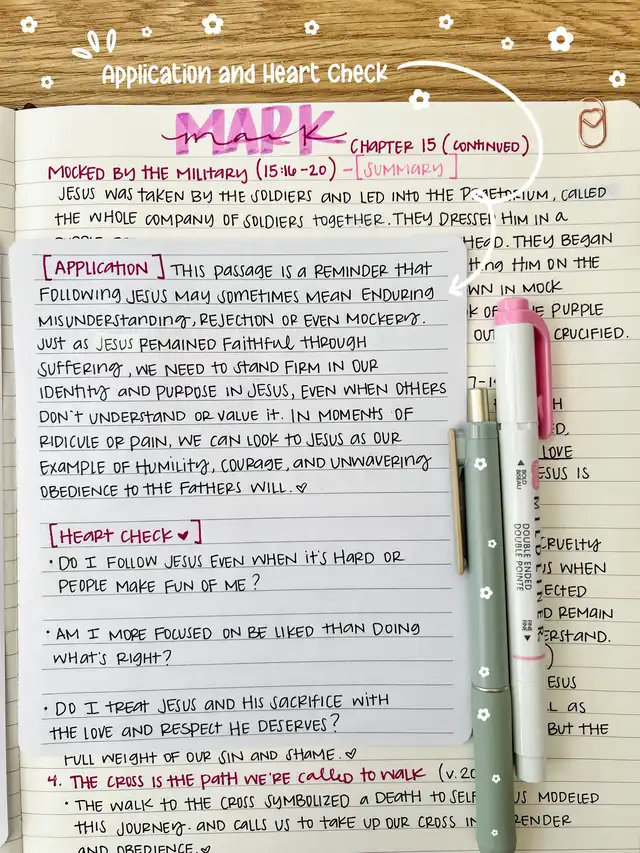 Application and Heart Check
MARK
mark
CHAPTER 15 (CONTINUED)
MOCKED BY THE MILITARY (15:16-20) - [SUMMARY]
JESUS WAS TAKEN BY THE SOLDIERS AND LED INTO THE PRAETORIUM, CALLED
THE WHOLE COMPANY OF SOLDIERS TOGETHER. THEY DRESSED HIM IN A
HEAD. THEY BEGAN
HIM ON THE
IN MOCK
OF THE PURPLE
OUT CRUCIFIED.
[APPLICATION] THIS PASSAGE IS A REMINDER THAT
FOLLOWING JESUS MAY SOMETIMES MEAN ENDURING
MISUNDERSTANDING, REJECTION OR EVEN MOCKERY.
JUST AS JESUS REMAINED FAITHFUL THROUGH
SUFFERING, WE NEED TO STAND FIRM IN OUR
IDENTITY AND PURPOSE IN JESUS, EVEN WHEN OTHERS
DON'T UNDERSTAND OR VALUE IT. IN MOMENTS OF
RIDICULE OR PAIN, WE CAN LOOK TO JESUS AS OUR
EXAMPLE OF HUMILITY, COURAGE, AND UNWAVERING
OBEDIENCE TO THE FATHERS WILL. ♡
[HEART CHECK ♥]
• DO I FOLLOW JESUS EVEN WHEN IT'S HARD OR
PEOPLE MAKE FUN OF ME?
• AM I MORE FOCUSED ON BE LIKED THAN DOING
WHAT'S RIGHT?
• DO I TREAT JESUS AND HIS SACRIFICE WITH
THE LOVE AND RESPECT HE DESERVES?
LOVE
IS
CRUELTY
WHEN
REMAIN
AS
BUT THE
BOLD
BISEAU
MILDLINER
DOUBLE ENDED
DOUBLE POINTE
FINE
FULL WEIGHT OF OUR SIN AND SHAME. ♡
4. THE CROSS IS THE PATH WE'RE CALLED TO WALK (v.20
• THE WALK TO THE CROSS SYMBOLIZED A DEATH TO MODELED
THIS JOURNEY. AND CALLS US TO TAKE UP OUR CROSS IN
AND OBEDIENCE. ♡